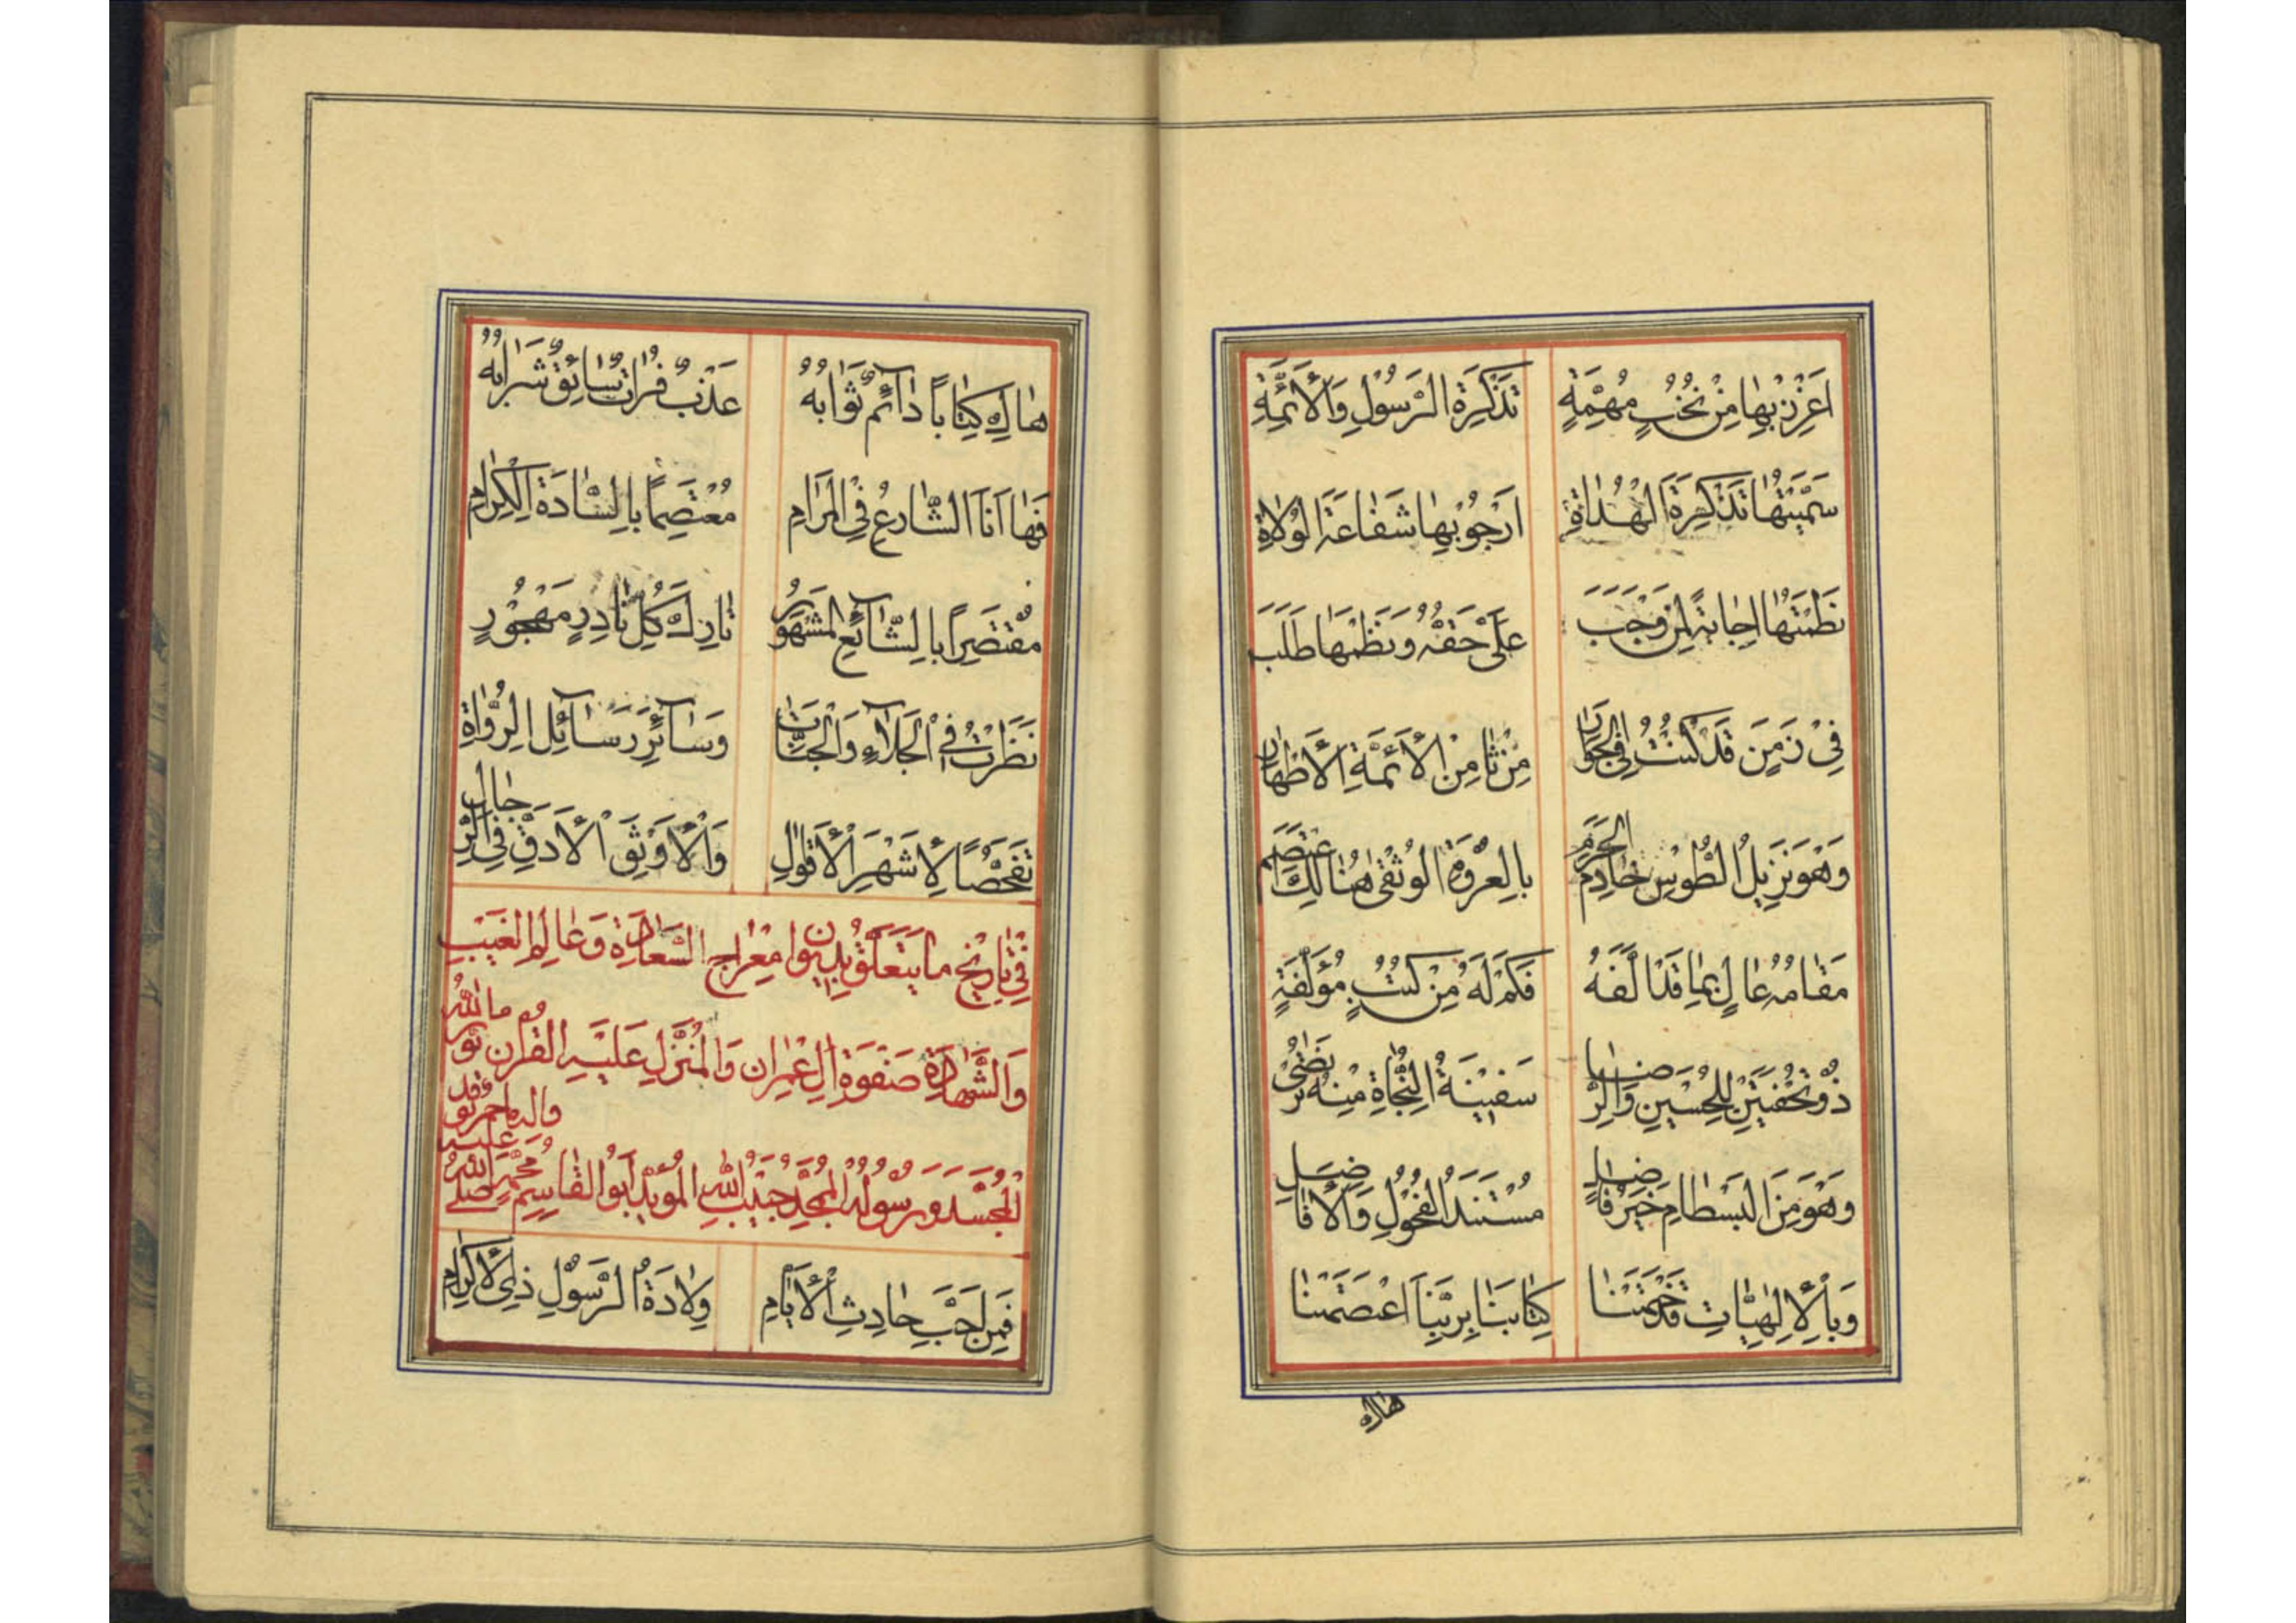 اَعْزِزْ بِهٰا مِنْ نُخَبٍ مُهِمَّةٍ تَذْكِرَةِ الرَّسُولِ وَالْأَئِمَّةِ
سَمَّيْتُهٰا تَذْكِرَةَ الْهُدٰاةِ اَرْجُو بِهٰا شَفٰاعَةَ الْوُلاٰةِ
نَظَمْتُهٰا اِجٰابَةً لِمَنْ وَجَبَ عَلَىَّ حَقُّهُ وَنَظْمَهٰا طَلَبَ
فِىْ زَمَنٍ قَدْ كُنْتُ فِى الْجِوٰارِ مِنْ ثٰامِنِ الْأَئِمَّةِ الْأَطْهٰارِ
وَهْوَ نَزِيْلُ الطُّوْسِ خٰادِمُ الْحَرَمِ بِالْعُرْوَةِ الْوُثْقٰى هُنٰالِكَ اعْتَصَمَ
مَقٰامُهُ عٰالٍ بِمٰا قَدْ اَلَّفَهُ فَكَمْ لَهُ مِنْ كُتُبٍ مُؤَلَّفَةٍ
ذُو تُحْفَتَيْنِ لِلْحُسَيْنِ وَالرِّضٰا سَفِيْنَةُ النَّجٰاةِ مِنْهُ تُرْتَضٰى
وَهْوَ مِنَ الْبَسْطٰامِ خَيْرُ فٰاضِلٍ مُسْتَنَدُ الْفُحُوْلِ وَالْأَفٰاضِلِ
وَبِالْإِلٰهِيّٰاتِ قَدْ خَتَمْنٰا كِتٰابَنٰا بِرَبِّنَا اعْتَصَمْنٰا
هٰاكَ
هٰاكَ كِتٰاباً دٰآئِمٌ ثَوٰابُهُ عَذْبٌ فُرٰاتٌ سٰائِقٌ شَرٰابُهُ
فَهٰا اَنَا الشّٰارِعُ فِى الْمَرٰامِ مُعْتَصِماً بِالسّٰادَةِ الْكِرٰامِ
مُقْتَصِراً بِالشّٰآئِعِ الْمَشْهُوْرِ تٰارِكَ كُلِّ نٰادِرٍ مَهْجُوْرٍ
نَظَرْتُ فِى الْجَلآءِ وَالْجَنّٰاتِ وَسٰآئِرِ رَسٰآئِلِ الرُّوٰاةِ
تَفَحُّصاً لِأَشْهَرِ الْأَقْوٰالِ وَالْأَوْثَقِ الْأَدَقِّ فِى الرِّجٰالِ
فِىْ تٰارِيْخِ مٰا يَتَعَلَّقُ بِدِيوٰانِ مِعْرٰاجِ السَّعٰادَةِ وَعٰالِمِ الْغَيْبِ
وَالشَّهٰادَةِ صَفْوَةِ اٰلِ عِمْرٰانَ وَالْمُنَزَّلِ عَلَيْهِ الْقُرْاٰنُ نُوْرُ اللهِ
الْمُجَسَّدُ وَرَسُوْلُهُ الْمُمَجَّدُ حَبِيْبُ اللهِ الْمُؤَيَّدُ اَبُو الْقٰاسِمِ مُحَمَّدٌ صَلَّى اللهُ عَلَيْهِ وَاٰلِهِ
فَمِنْ لَجَبِ حٰادِثِ الْأَيّٰامِ وِلاٰدَةُ الرَّسُوْلِ ذِى الْأَكْرٰامِ